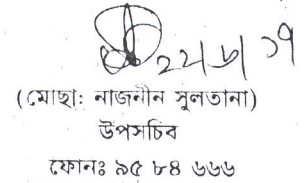 ২২/৬/১৭
(মোছা: নাজনীন সুলতানা)
উপসচিব
ফোনঃ ৯৫ ৮৪ ৬৬৬